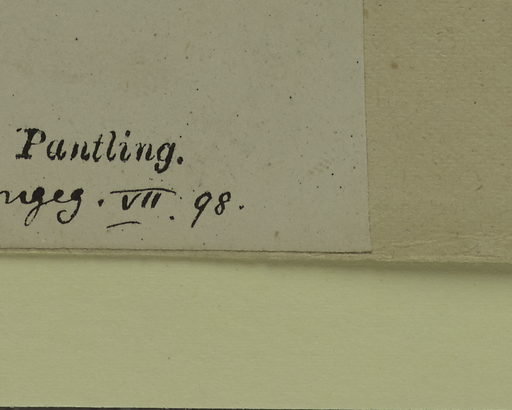 Pantling.
ngeg. VII. 98.